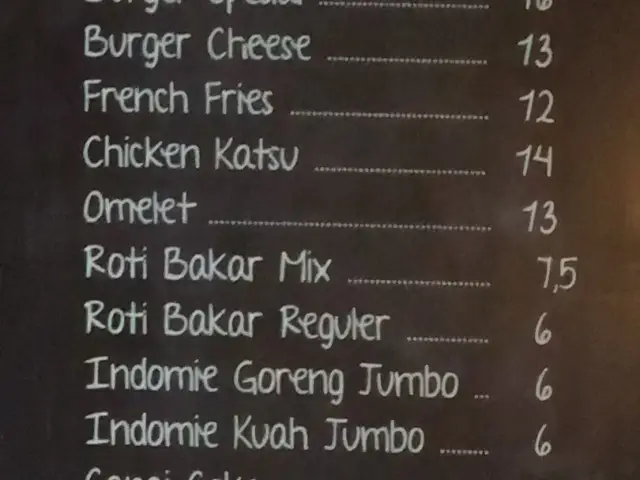 Burger Special ........ 16
Burger Cheese ........ 13
French Fries ........ 12
Chicken Katsu ........ 14
Omelet ........ 13
Roti Bakar Mix ........ 7,5
Roti Bakar Reguler ........ 6
Indomie Goreng Jumbo ... 6
Indomie Kuah Jumbo ........ 6